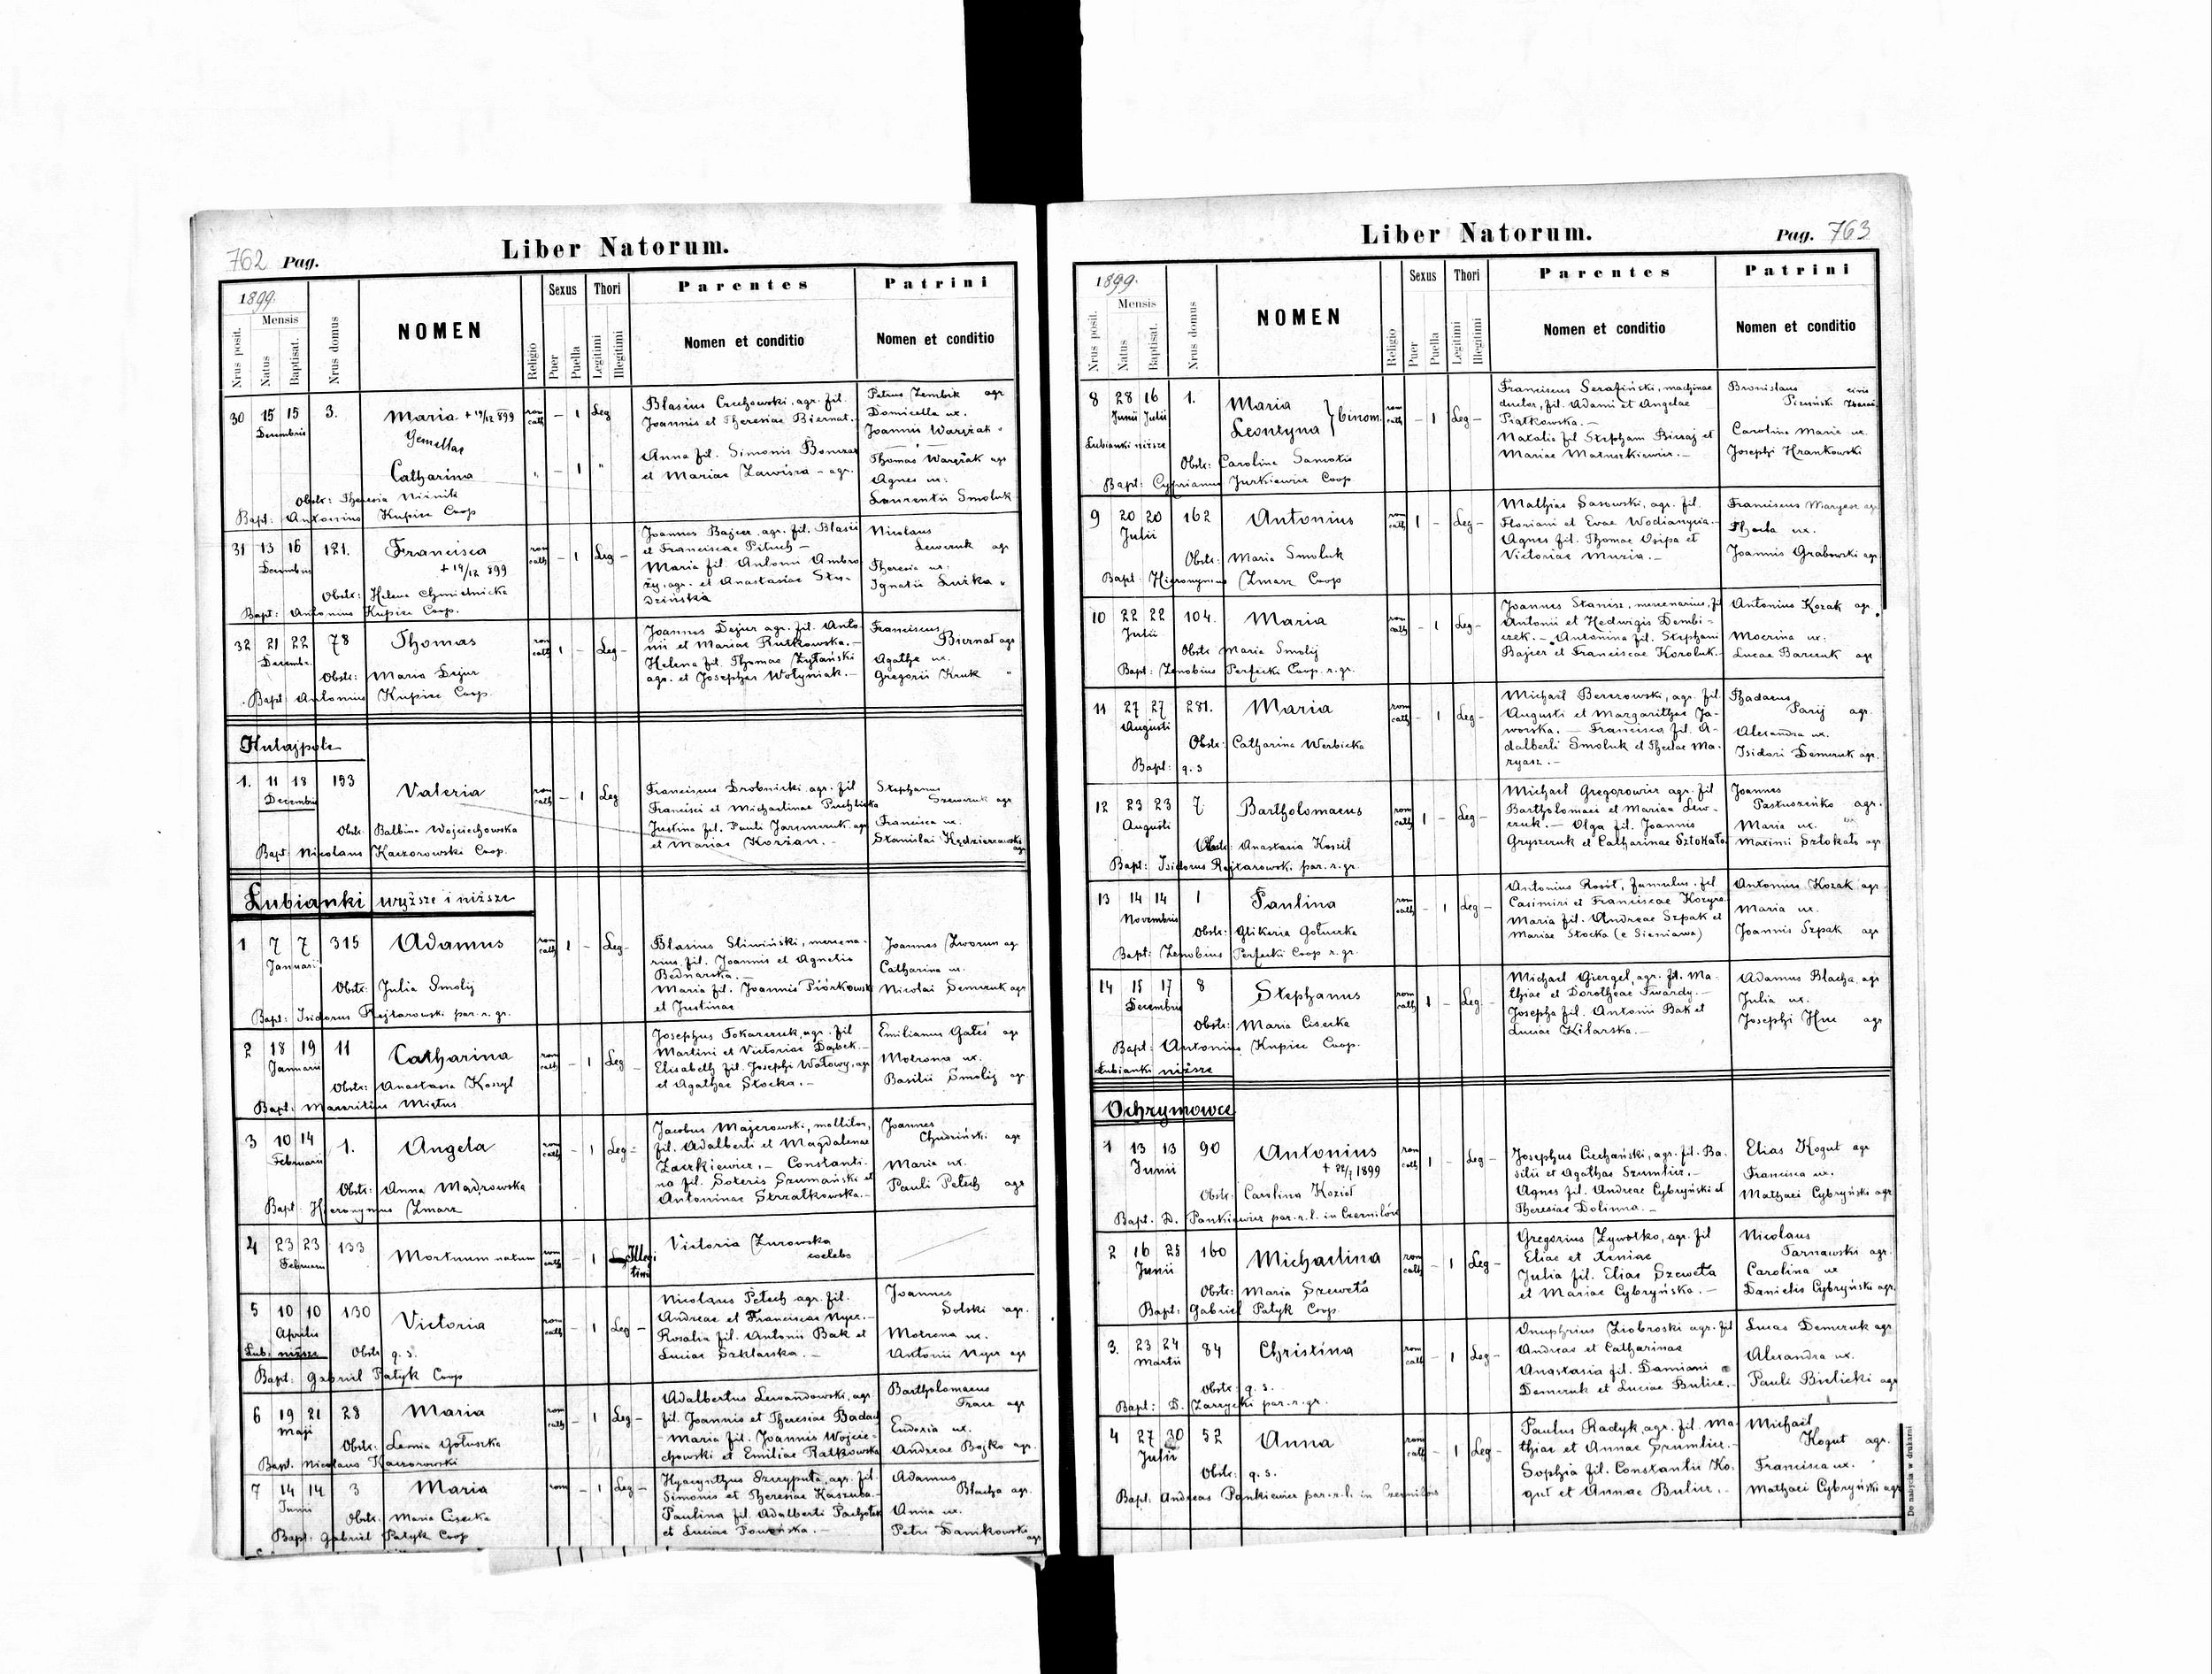 762 Pag.
Liber Natorum.
1899.
Mensis
Nrus posit.
Natus
Baptisat.
Nrus domus
NOMEN
Religio
Sexus
Puer
Puella
Thori
Legitimi
Illegitimi
Parentes
Nomen et conditio
Patrini
Nomen et conditio
30 15 15 3. Maria + 19/12 899 rom cath – 1 Leg
Decembris
Gemellae
Catharina " – 1 "
Obstr: Theresia
Bapt: Antonius Kupiec Coop
Blasius agr. fil.
Joannis et Theresiae Biernat.
Anna fil. Simonis
et Mariae Zawisza – agr.
Petrus Zembik agr
Domicella ux.
Joannis "
Thomas agr
Agnes ux:
Laurentii Smoluk
31 13 16 121. Francisca rom cath – 1 Leg –
Decembris
+ 19/12 899
Obstr: Helena Chmielnicka
Bapt: Antonius Kupiec Coop.
Joannes Bajcer, agr. fil. Blasii
et Franciscae Pituch –
Maria fil. Antonii Ambro
ży, agr. et Anastasiae Stu-
dzińska
Nicolaus
Lewczuk agr
Theresia ux:
Ignatii "
32 21 22 78 Thomas rom cath 1 – Leg –
Decembr.
Obstr: Maria Dejur
Bapt: Antonius Kupiec Coop.
Joannes Dejur agr. fil. Anto-
nii et Mariae Rutkowska. –
Helena fil. Thomae Żytański
agr. et Josephae Wołyniak. –
Franciscus
Biernat agr
Agatha ux.
Gregorii Kruk "
Hulajpole
1. 11 18 193 Valeria rom cath – 1 Leg
Decembris
Obstr: Balbina Wojciechowska
Bapt: Nicolaus Kaczorowski Coop.
Franciscus Drobnicki agr. fil
Francisci et Michaelinae
Justina fil. Pauli Jaremczuk agr
et Mariae Korżan. –
Stephanus
Szewczuk agr
Francisca ux.
Stanislai
agr
Łubianki wyższe i niższe
1 7 7 315 Adamus rom cath 1 – Leg –
Januarii
Obstr: Julia Smolij
Bapt: Isidorus Rejtarowski par. r. gr.
Blasius Śliwiński, mercena-
rius, fil. Joannis et Agnetis
Bednarska. –
Maria fil. Joannis Piórkowski
et Justinae
Joannes Zworun agr
Catharina ux.
Nicolai Demczuk agr
2 18 19 11 Catharina rom cath – 1 Leg –
Januarii
Obstr: Anastasia Koszyl
Bapt: Mauritius Miętus
Josephus Tokarczuk, agr. fil
Martini et Victoriae Dąbek. –
Elisabeth fil. Josephi Wołowy, agr
et Agathae Stocka. –
Emilianus Gałeś agr
Motrona ux.
Basilii Smolij agr
3 10 14 1. Angela rom cath – 1 Leg –
Februarii
Obstr: Anna Mądrowska
Bapt: Hieronymus Zmarz
Jacobus Majerowski, mollitor,
fil. Adalberti et Magdalenae
Zaczkiewicz. – Constanti-
na fil. Soteris Szumański et
Antoninae Strzałkowska. –
Joannes
Chudziński agr
Maria ux.
Pauli Petech agr
4 23 23 133 Mortuum natum rom cath – 1 Illegi
timi
Februarii
Victoria Żurowska
coelebs
5 10 10 130 Victoria rom cath – 1 Leg –
Aprilis
Łub: niższe Obstr q. s.
Bapt: Gabriel Patyk Coop
Nicolaus Petech agr. fil.
Andreae et Franciscae Nycz. –
Rosalia fil. Antonii Bak et
Luciae Szklarska. –
Joannes
Solski agr.
Motrona ux.
Antonii Nycz agr
6 19 21 28 Maria rom cath – 1 Leg –
Maji
Obstr: Leonia Gołuszka
Bapt. Nicolaus Kaczorowski
Adalbertus Lewandowski, agr.
fil. Joannis et Theresiae Badach
– Maria fil. Joannis Wojcie-
chowski et Emiliae Ratkowska
Bartholomaeus
Fracz agr
Eudoxia ux.
Andreae Bojko agr.
7 14 14 3 Maria rom – 1 Leg –
Junii
Obstr. Maria Cisecka
Bapt: Gabriel Patyk Coop
Hyacynthus Szczyputa, agr. fil.
Simonis et Theresiae Kaszuba. –
Paulina fil. Adalberti Pachołek
et Luciae
Adamus
Błacha agr.
Anna ux.
Petri Danikowski
agr
Liber Natorum.
Pag. 763
1899.
Mensis
Nrus posit.
Natus
Baptisat.
Nrus domus
NOMEN
Religio
Sexus
Puer
Puella
Thori
Legitimi
Illegitimi
Parentes
Nomen et conditio
Patrini
Nomen et conditio
8 28 16 1. Maria
Leontyna } binom. rom cath – 1 Leg –
Junii Julii
Łubianki niższe
Obstr: Carolina Samotis
Bapt: Cyprianus Jurkiewicz Coop.
Franciscus Serafiński, machinae
ductor, fil. Adami et Angelae
Piątkowska. –
Natalis fil Stephani Bieszaj et
Mariae Matuszkiewicz. –
Bronislaus civis
Carolina Maria ux.
Josephi Hrankowski
9 20 20 162 Antonius rom cath 1 – Leg –
Julii
Obstr: Maria Smoluk
Bapt: Hieronymus Zmarz Coop
Mathias Sasowski, agr. fil.
Floriani et Evae
Agnes fil. Thomae Osipa et
Victoriae Muzia. –
Franciscus Maryasz agr
Thecla ux.
Joannis Grabowski agr
10 22 22 104. Maria rom cath – 1 Leg –
Julii
Obstr Maria Smolij
Bapt: Zenobius Perfecki Coop. r. gr.
Joannes Stanisz, mercenarius, fil
Antonii et Hedwigis Dembi-
czek. – Antonina fil. Stephani
Bajcer et Franciscae Koroluk. –
Antonius Kozak agr.
Mocrina ux.
Lucae Barczuk agr
11 27 27 281. Maria rom cath – 1 Leg –
Augusti
Obstr: Catharina Werbicka
Bapt: q. s
Michael Berezowski, agr. fil.
Augusti et Margarithae Ja-
worska. – Francisca fil. A-
dalberti Smoluk et Theclae Ma-
ryasz. –
Thadaeus
Parij agr.
Alexandra ux.
Isidori Demczuk agr.
12 23 23 7 Bartholomaeus rom cath 1 – Leg –
Augusti
Obstr: Anastasia Koszil
Bapt: Isidorus Rejtarowski par. r. gr.
Michael Gregorowicz agr. fil
Bartholomaei et Mariae Lew-
czuk. – Olga fil. Joannis
Gryszczuk et Catharinae Sztokało.
Joannes
Pastuszeńko agr.
Maria ux.
Maximi Sztokało agr.
13 14 14 1 Paulina rom cath – 1 Leg –
Novembris
Obstr: Glikeria Gołuszka
Bapt: Zenobius Perfecki Coop r. gr.
Antonius Rosół, famulus. fil
Casimiri et Franciscae Kozyra
Maria fil. Andreae Szpak et
Mariae Stocka (e Sieniawa)
Antonius Kozak agr
Maria ux.
Joannis Szpak agr
14 15 17 8 Stephanus rom cath 1 – Leg. –
Decembris
Obstr: Maria Cisecka
Bapt: Antonius Kupiec Coop.
Łubianki niższe
Michael Giergel, agr. fil. Ma-
thiae et Dorotheae Twardy. –
Josepha fil. Antonii Bak et
Luciae Kilarska. –
Adamus Błacha agr
Julia ux.
Josephi Huc agr
Ochrymowce
1 13 13 90 Antonius rom cath 1 – Leg –
Junii
+ 22/7 1899
Obstr: Carolina Kozieł
Bapt. D. Pankiewicz par. r. l. in Czernilów
Josephus Ciechański, agr. fil. Ba-
silii et Agathae Szumlicz. –
Agnes fil. Andreae Cybryński et
Theresiae Dolinna. –
Elias Kogut agr
Francisca ux.
Mathaei Cybryński agr
2 16 25 160 Michaelina rom cath – 1 Leg –
Junii
Obstr: Maria Szeweta
Bapt: Gabriel Patyk Coop.
Gregorius Żywotko, agr. fil
Eliae et Xeniae
Julia fil. Eliae Szeweta
et Mariae Cybryńska. –
Nicolaus
Tarnawski agr.
Carolina ux
Danielis Cybryński agr.
3. 23 24 84 Christina rom cath – 1 Leg –
Martii
Obstr: q. s.
Bapt: D. Zarzycki par. r. gr.
Onuphrius Ziobroski agr. fil
Andreae et Catharinae
Anastasia fil. Damiani
Demczuk et Luciae Bulicz. –
Lucas Demczuk agr
Alexandra ux.
Pauli Bielicki agr
4 27 30 52 Anna rom cath – 1 Leg –
Julii
Obstr: q. s.
Bapt: Andreas Pankiewicz par. r. l. in Czernilów
Paulus Radyk, agr. fil. Ma-
thiae et Annae Szumlicz. –
Sophia fil. Constantii Ko-
gut et Annae Bulicz. –
Michael
Kogut agr.
Francisca ux.
Mathaei Cybryński agr
Do nabycia w drukarni